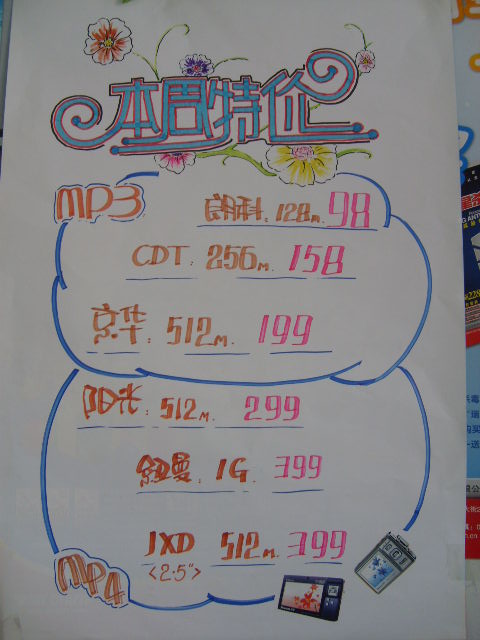 本周特价
MP3
朗科: 128M. 98
CDT: 256M. 158
京华: 512M. 199
阳光: 512M. 299
纽曼: 1G. 399
JXD 512M. 399
<2.5">
MP4